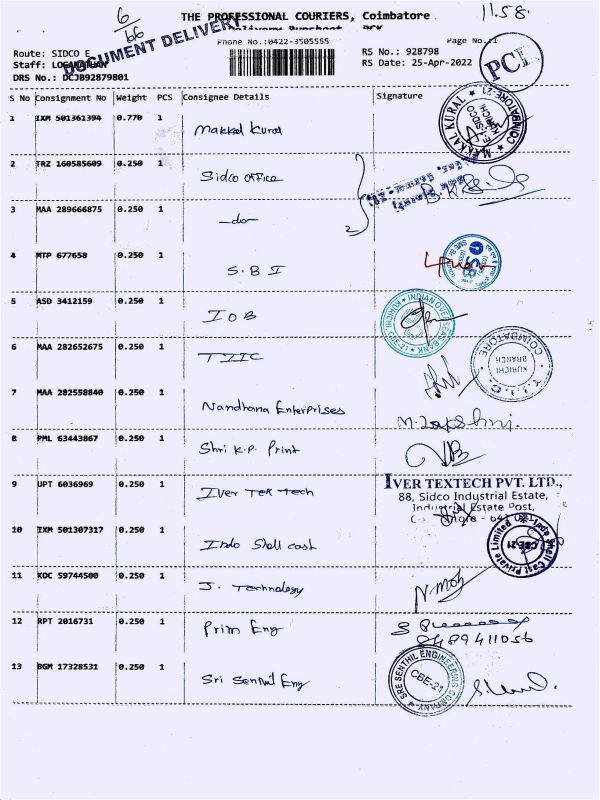 6
66
DOCUMENT DELIVERY
THE PROFESSIONAL COURIERS, Coimbatore
11.58
Delivery Runsheet - PCK
Phone No.:0422-3505555
Page No.:1
Route: SIDCO E
RS No.: 928798
Staff: LOGANATHAN
RS Date: 25-Apr-2022
DRS No.: DCJB92879801
PCK
S No Consignment No Weight PCS Consignee Details Signature
1 IXM 501361394 0.770 1 Makkal Kural
MAKKAL KURAL COIMBATORE-21 SIDCO KURICHI
2 TRZ 160585609 0.250 1 Sidco office
3 MAA 289666875 0.250 1 -do-
2
4 MTP 677658 0.250 1 S.B I
5 ASD 3412159 0.250 1 I O B
INDIAN OVERSEAS BANK KURICHI CBE-21
6 MAA 282652675 0.250 1 TIIC
COIMBATORE KURICHI BRANCH
7 MAA 282558840 0.250 1 Nandhana Enterprises
8 PML 63443867 0.250 1 Shri K.P. Print
9 UPT 6036969 0.250 1 Iver Tex tech
IVER TEXTECH PVT. LTD.,
88, Sidco Industrial Estate,
Industrial Estate Post,
10 IXM 501307317 0.250 1 Indo Shell cast
Indo Shell Cast Private Limited CBE-21
11 KOC 59744500 0.250 1 J. Technology
12 RPT 2016731 0.250 1 Prim Eng
8489411056
13 BGM 17328531 0.250 1 Sri Senthil Eng
SRE SENTHIL ENGINEERING COMPANY CBE-21